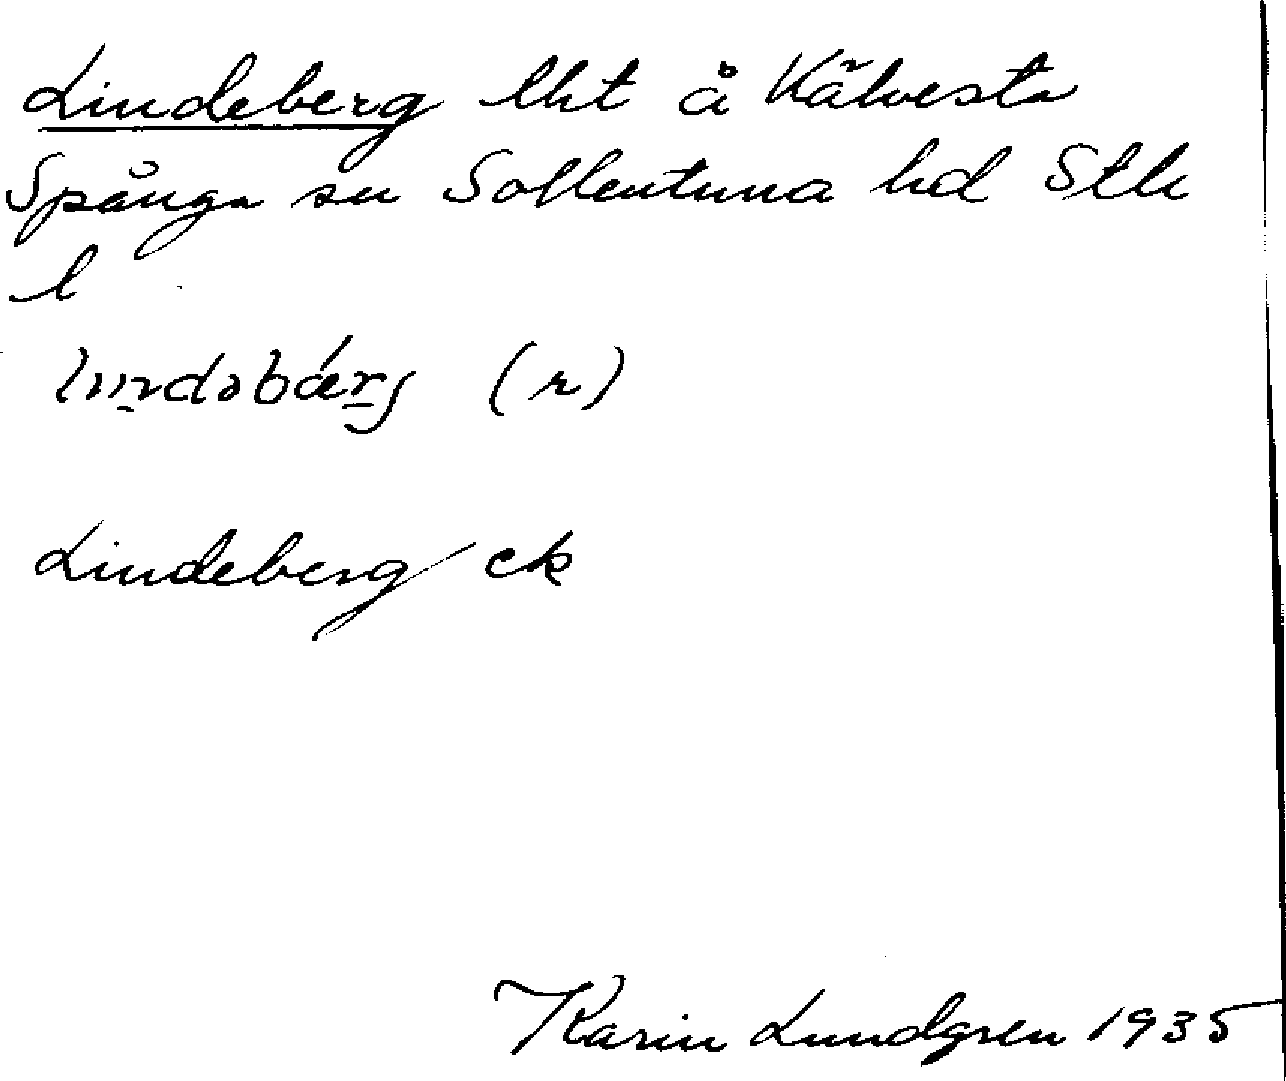 Lindeberg lht å Kälvesta
Spånga sn Sollentuna hd Sthl
l
(r)
Lindeberg ek
Karin Lundgren 1935